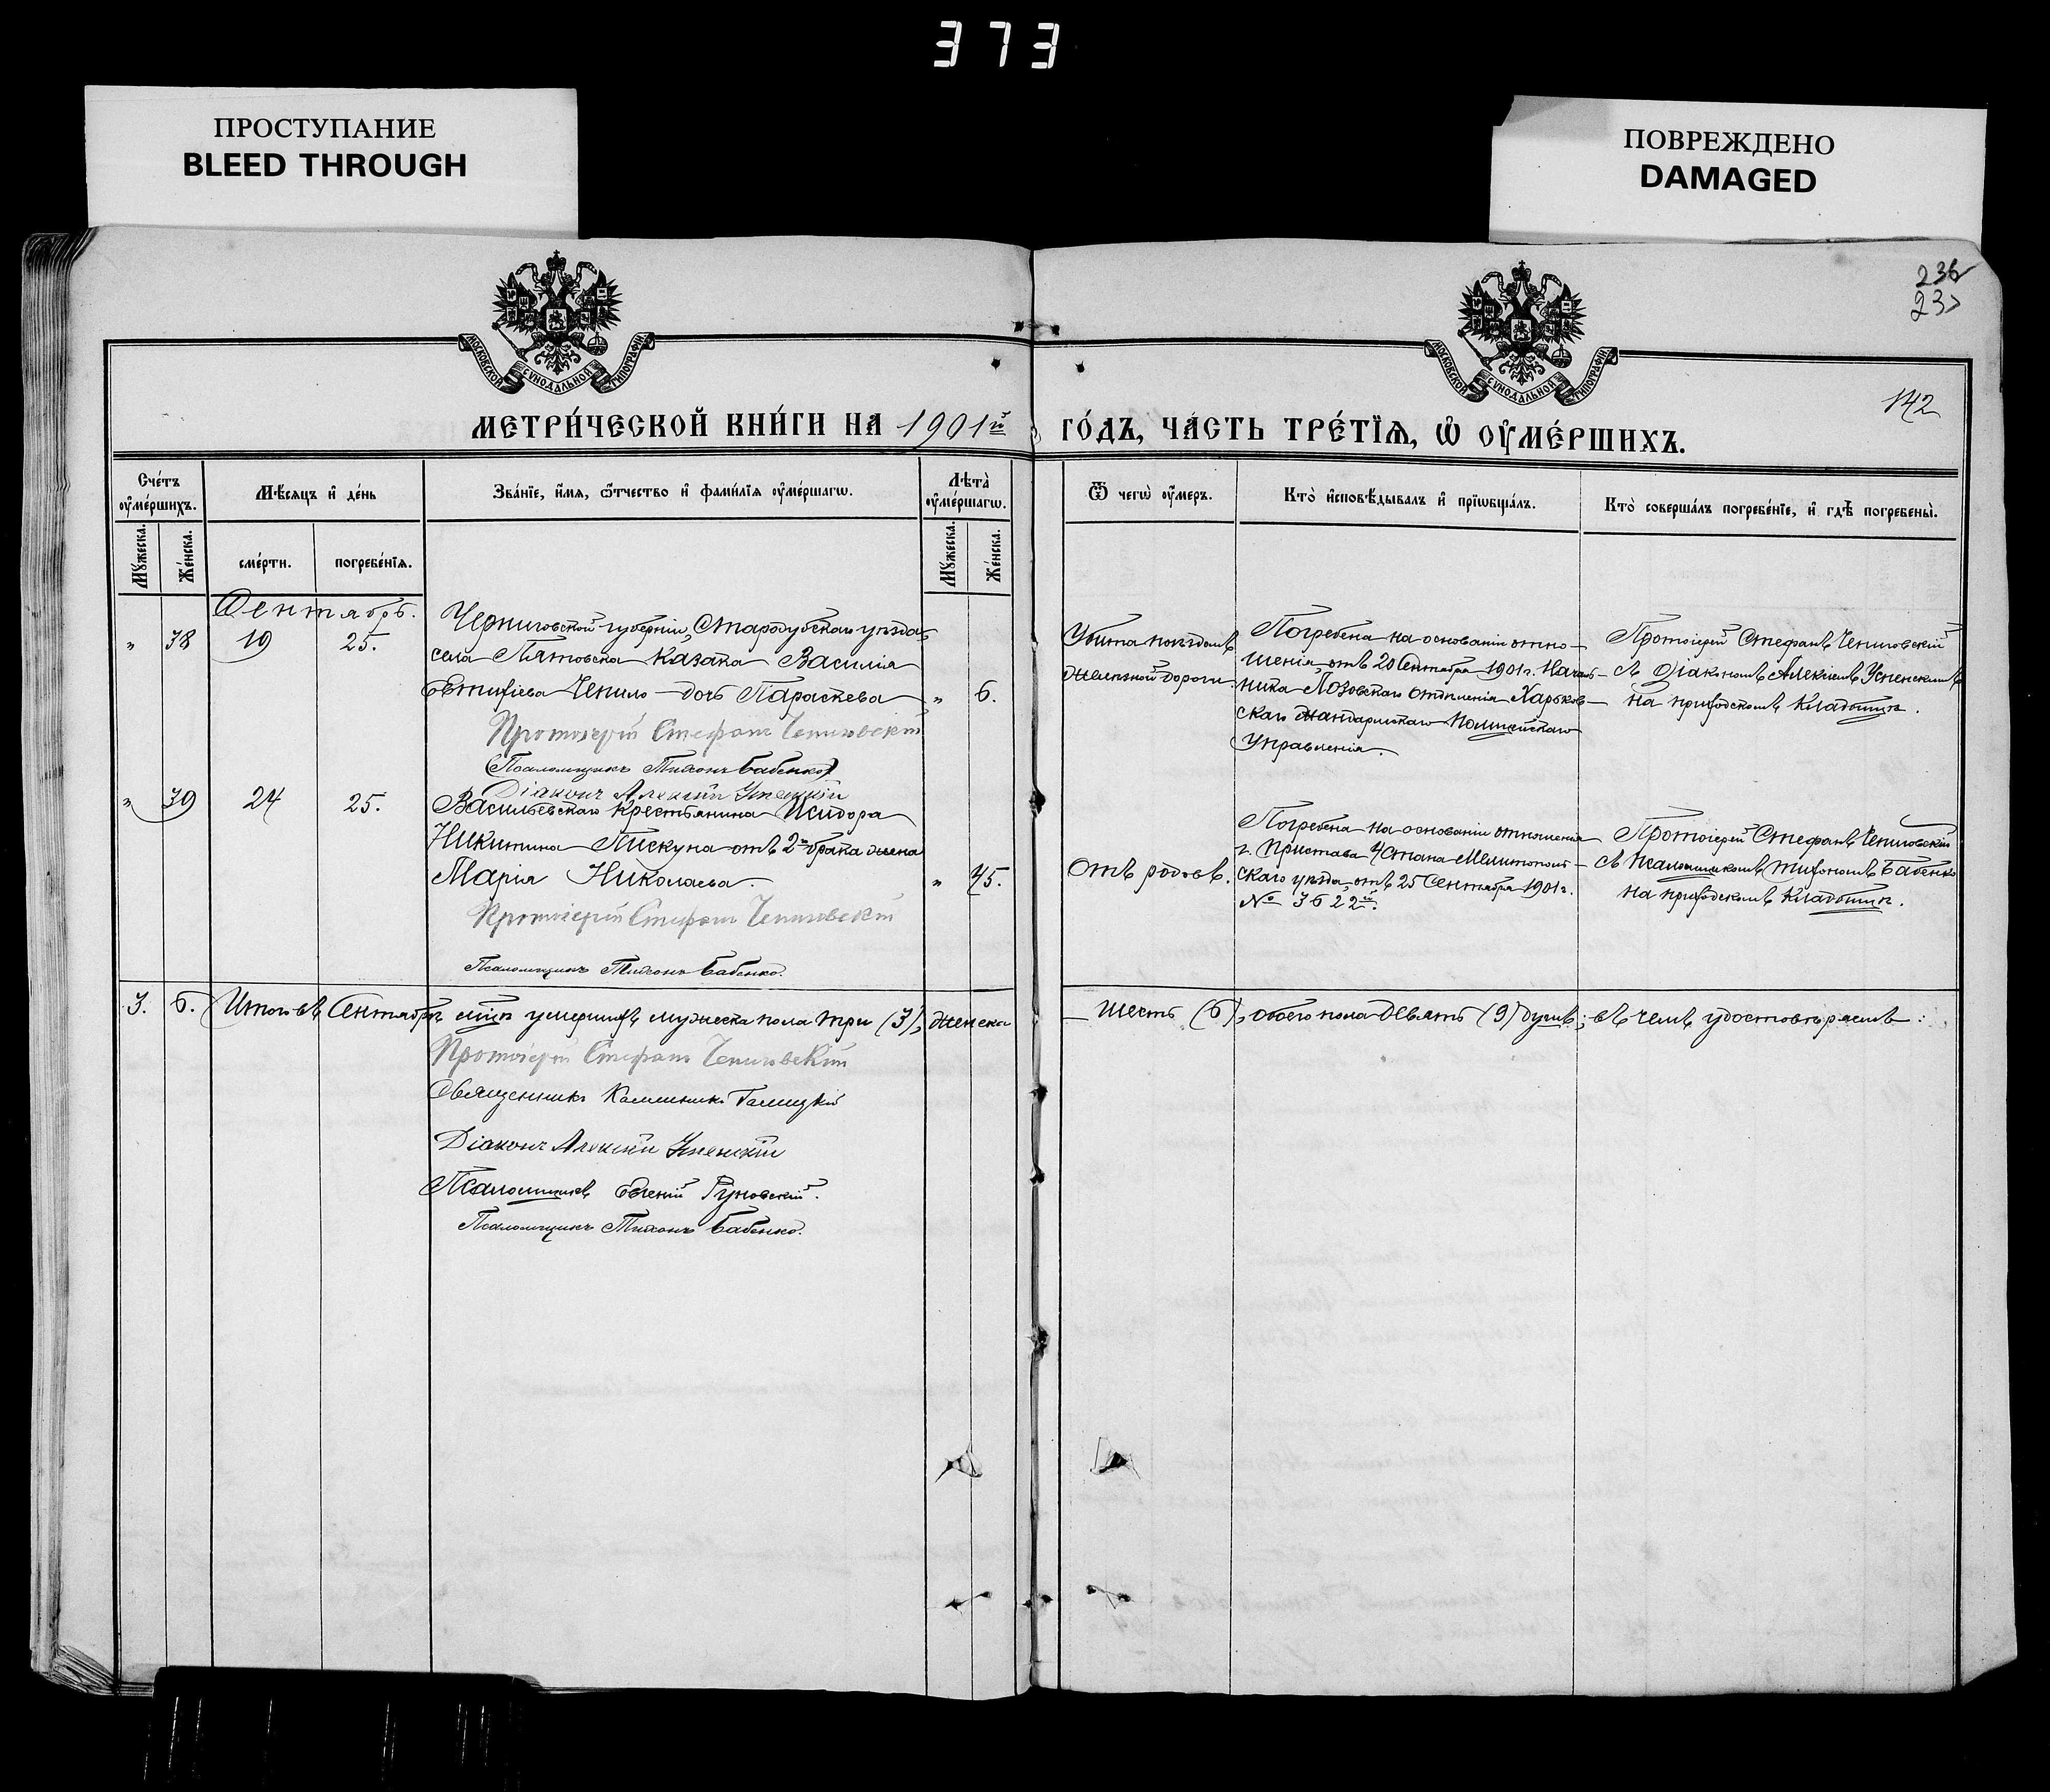 373
ПРОСТУПАНИЕ
BLEED THROUGH
ПОВРЕЖДЕНО
DAMAGED
236
237
МОСКОВСКОЙ СѴНОДАЛЬНОЙ ТИПОГРАФІИ
МОСКОВСКОЙ СѴНОДАЛЬНОЙ ТИПОГРАФІИ
142
МЕТРИ́ЧЕСКОЙ КНИ́ГИ НА 1901й ГО́ДЪ, ЧА́СТЬ ТРЕ́ТЇѦ, Ѡ҆ ОУ҆МЕ́РШИХЪ.
Сче́тъ оу҆ме́ршихъ.
Мѣ́сяцъ и҆ де́нь
Зва́нїе, и҆́мя, ѻ҆́тчество и҆ фами́лїя оу҆ме́ршагѡ.
Лѣ́та оу҆ме́ршагѡ.
Ѿ чегѡ̀ оу҆́меръ.
Кто̀ и҆сповѣ́дывалъ и҆ прїѡбща́лъ.
Кто̀ соверша́лъ погребе́нїе, и҆ гдѣ̀ погребены̀.
Мꙋ́жеска.
Же́нска.
сме́рти.
погребе́нїя.
Мꙋ́жеска.
Же́нска.
Сентябрь.
" 38 19 25.
Черниговской губерніи, Стародубскаго уѣзда,
села Пятовска казака Василія
Евтифіева Чепило дочь Параскева " 6.
Протоіерей Стефанъ Чепиговскій
Псаломщикъ Тихонъ Бабенко
Діаконъ Алексій Успенскій
Убита поѣздомъ
желѣзной дороги.
Погребена на основаніи отно-
шенія, отъ 20 Сентября 1901 г. Началь-
ника Лозовскаго отдѣленія Харьков-
скаго жандармскаго Полицейскаго
Управленія.
Протоіерей Стефанъ Чепиговскій
съ Діакономъ Алексіемъ Успенскимъ
на приходскомъ кладбищѣ.
" 39 24 25.
Васильевскаго крестьянина Исидора
Никитина Пискуна отъ 2го брака жена
Марія Николаева. " 45.
Протоіерей Стефанъ Чепиговскій
Псаломщикъ Тихонъ Бабенко.
Отъ родовъ.
Погребена на основаніи отношенія
г. Пристава 4 Стана Мелитополь-
скаго уѣзда, отъ 25 Сентября 1901 г.
№ 3622й.
Протоіерей Стефанъ Чепиговскій
съ Псаломщикомъ Тихономъ Бабенко
на приходскомъ кладбищѣ.
3. 6. Итого въ Сентябрѣ мцѣ умершихъ мужеска пола три (3), женска
шесть (6), обоего пола девять (9) душъ; въ чемъ удостовѣряемъ:
Протоіерей Стефанъ Чепиговскій
Священникъ Галицкій
Діаконъ Алексій Успенскій
Псаломщикъ Евгеній Руновскій.
Псаломщикъ Тихонъ Бабенко.